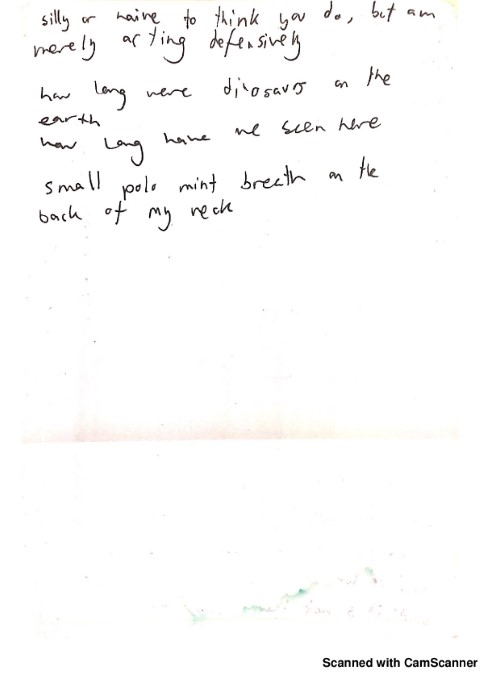 silly or naive to think you do, but am
merely acting defensively
how long were dinosaurs on the
earth
how long have we seen here
small polo mint breath on the
back of my neck
Scanned with CamScanner